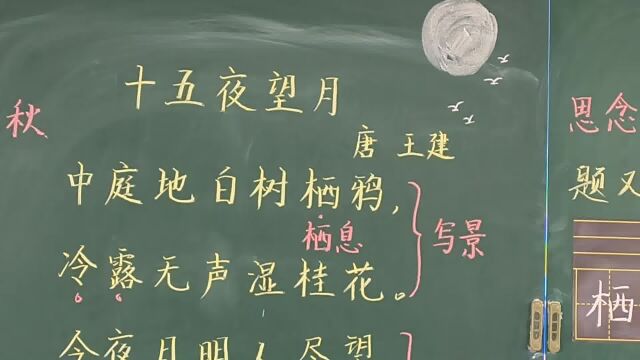 十五夜望月
秋
唐 王建
中庭地白树栖鸦，
栖息
写景
冷露无声湿桂花。
今夜月明人尽望
思念
题又
栖